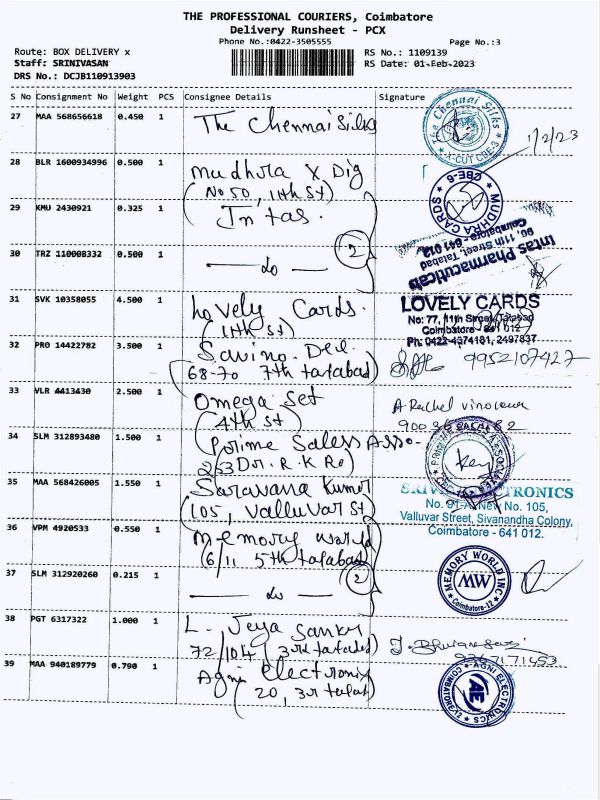 THE PROFESSIONAL COURIERS, Coimbatore
Delivery Runsheet - PCX
Phone No.:0422-3505555
Page No.:3
Route: BOX DELIVERY x
RS No.: 1109139
Staff: SRINIVASAN
RS Date: 01-Feb-2023
DRS No.: DCJB110913903
S No Consignment No Weight PCS Consignee Details Signature
27 MAA 568656618 0.450 1 The Chennai Silks
The Chennai Silks
X-CUT CBE-3
1/2/23
28 BLR 1600934996 0.500 1 Mudhra X Dig
(No 50, 11th St)
MUDHRA CARDS
CBE-6
29 KMU 2430921 0.325 1 Intas.
2
Intas Pharmaceuticals
90, 11th Street, Tatabad
Coimbatore - 641 012
30 TRZ 110008332 0.500 1 — do —
31 SVK 10358055 4.500 1 Lovely Cards.
(11th St)
LOVELY CARDS
No: 77, 11th Street, Tatabad
Coimbatore - 641 012
Ph: 0422-4374181, 2497837
32 PRO 14422782 3.500 1 Saving. Dec.
68-70 7th tatabad)
9952107427
33 VLR 4413430 2.500 1 Omega Set
(4th St)
A Rachel
34 SLM 312893480 1.500 1 Prime Saless Asso-
253 Dr. R. K Ro)
35 MAA 568426005 1.550 1 Saravana Kumar
(105, Valluvar St)
ELECTRONICS
New No. 105,
Valluvar Street, Sivanandha Colony,
Coimbatore - 641 012.
36 VPM 4920533 0.550 1 Memory World
(6/11 5th tatabad)
2
MEMORY WORLD INC
MW
Coimbatore-12
37 SLM 312920260 0.215 1 — do —
38 PGT 6317322 1.000 1 L. Jeya Sankr
72/104 (3rd tatabad)
9367171653
39 MAA 940189779 0.790 1 Agni Electronix
(20, 3rd tatabat)
AGNI ELECTRONICS
AE
COIMBATORE-12